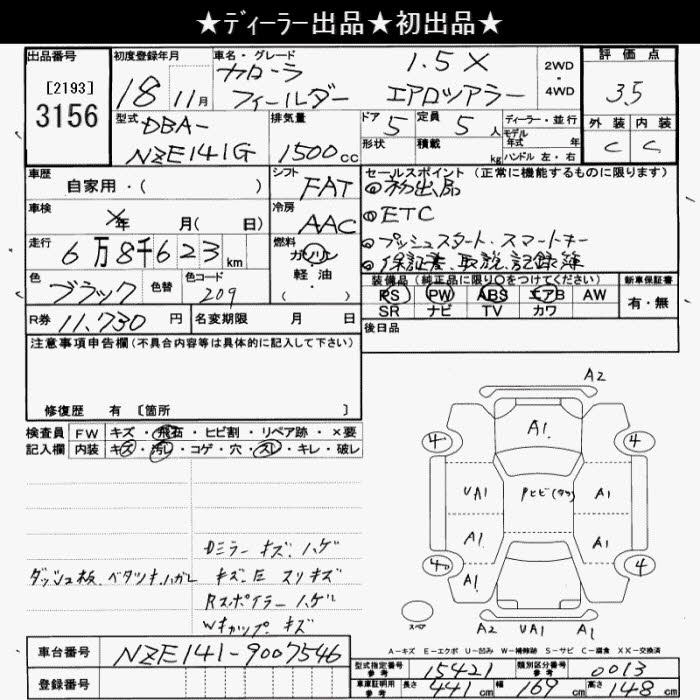 ★ディーラー出品★初出品★
出品番号 初度登録年月 車名・グレード 評価点
[2193]
3156
18 11月
カローラ 1.5X
フィールダー エアロツアラー
2WD
・
4WD
3.5
外装 内装
C C
型式 DBA-
NZE141G
排気量
1500cc
ドア 5 定員 5人
形状 積載 kg
ディーラー・並行
モデル
年式 年
ハンドル 左・右
車歴
自家用・( )
シフト FAT
セールスポイント (正常に機能するものに限ります)
◎初出品
◎ETC
◎プッシュスタート、スマートキー
◎保証書、取説、記録簿
車検
年 月( 日)
冷房 AAC
走行 6万8千623km
燃料 ガソリン
軽油
( ・ )
色 ブラック 色替 色コード 209
装備品(純正品に限り○をつけてください) 新車保証書
PS PW ABS エアB AW 有・無
SR ナビ TV カワ
R券 11,730円 名変期限 月 日
後日品
注意事項申告欄(不具合内容等は具体的に記入して下さい)
修復歴 有 [箇所 ]
検査員 FW キズ・飛石・ヒビ割・リペア跡・×要
記入欄 内装 キズ・汚レ・コゲ・穴・スレ・キレ・破レ
A2
A1
4 4
UA1 A1
A1 A1
4 4
A1
スペア
A2 UA1 A1
Dミラー キズ、ハゲ
ダッシュ板、ベタツキ、ハガレ
Rスポイラー ハゲ
Wキャップ キズ
A-キズ E-エクボ U-凹み W-補修跡 S-サビ C-腐食 XX-交換済
車台番号 NZE141-9007546
登録番号
型式指定番号 参考 15421 類別区分番号 参考 0013
車庫証明用 参考 長さ 441cm 幅 169cm 高さ 148cm